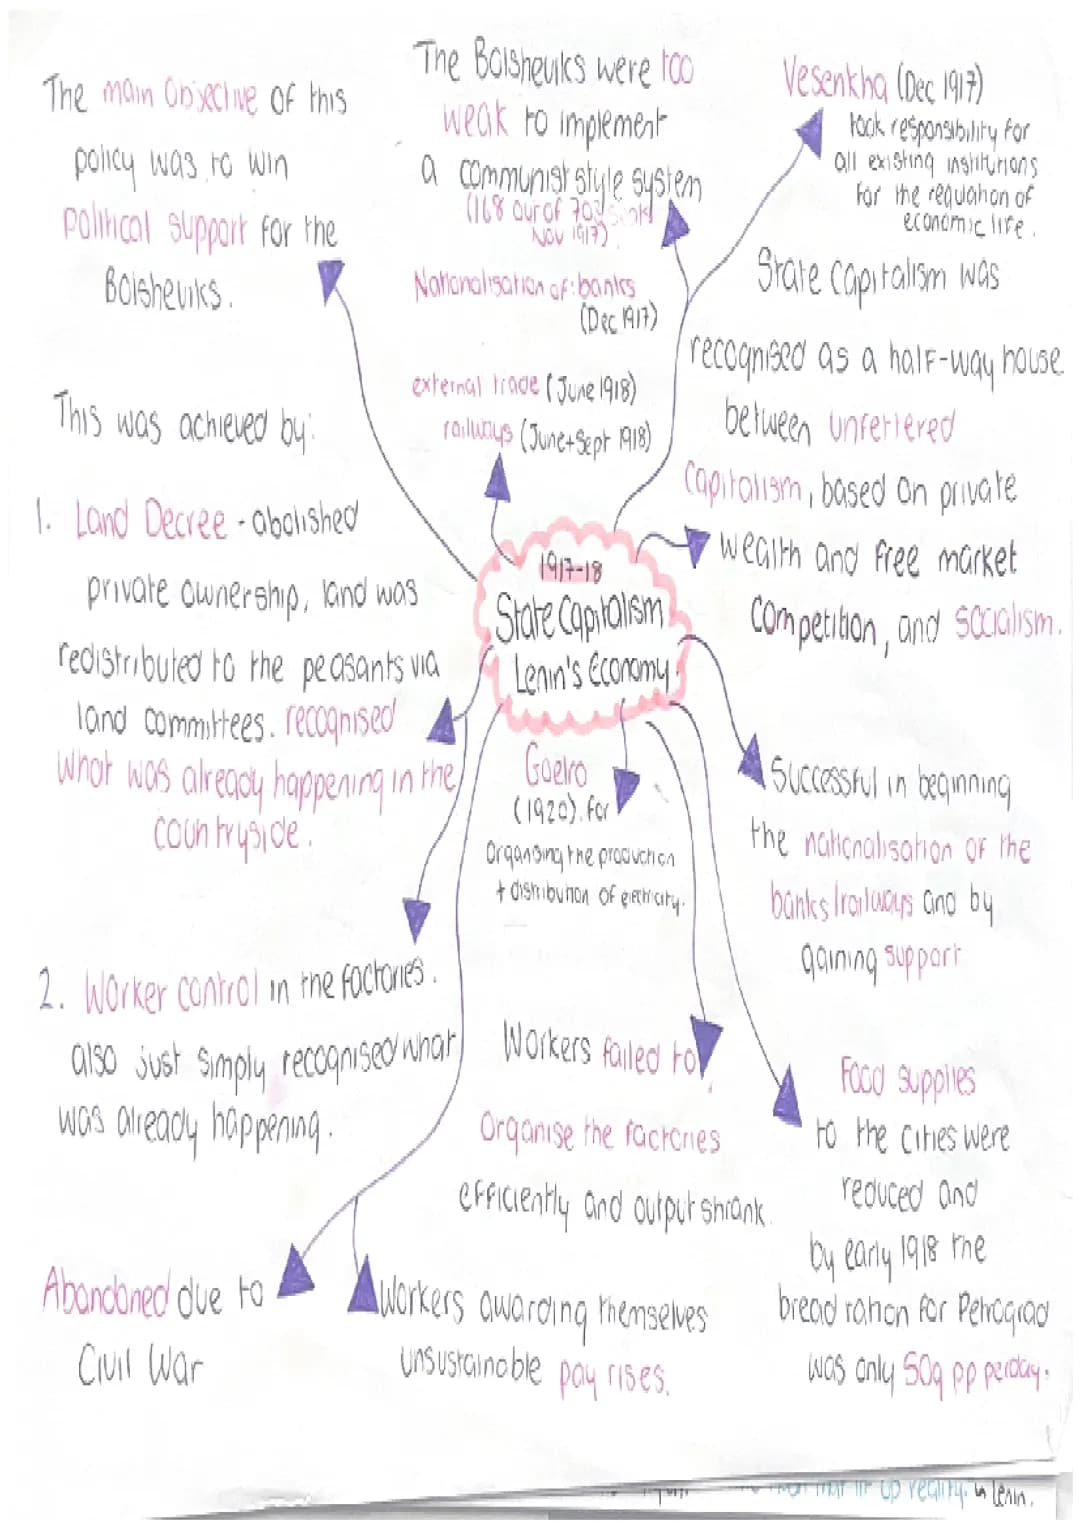 The main Objective of this
policy was to win
political support for the
Bolsheviks.
The Bolsheviks were too
weak to implement
a communist style system
(168 out of 703 seats
Nov 1917).
Vesenkha (Dec 1917)
took responsibility for
all existing institutions
for the regulation of
economic life.
Nationalisation of: banks
(Dec 1917)
external trade (June 1918)
railways (June+Sept 1918)
State Capitalism was
recognised as a half-way house
between unfettered
Capitalism, based on private
wealth and free market
competition, and socialism.
This was achieved by:
1. Land Decree - abolished
private ownership, land was
redistributed to the peasants via
land committees. recognised
what was already happening in the
countryside.
1917-18
State Capitalism
Lenin's Economy.
Goelro
(1920). for
Organsing the production
+ distribution of electricity.
Successful in beginning
the nationalisation of the
banks/railways and by
gaining support
2. Worker control in the factories.
also just simply recognised what
was already happening.
Workers failed to
Organise the factories
efficiently and output shrank.
Food supplies
to the cities were
reduced and
by early 1918 the
bread ration for Petrograd
was only 50g pp perday.
Abandoned due to
Civil War
Workers awarding themselves
unsustainable pay rises.
up reality. in Lenin.